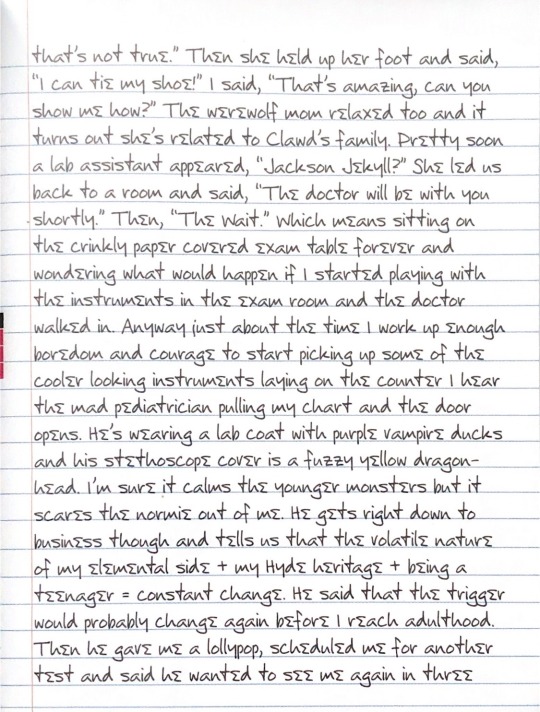 that's not true." Then she held up her foot and said,
"I can tie my shoe!" I said, "That's amazing, can you
show me how?" The werewolf mom relaxed too and it
turns out she's related to Clawd's family. Pretty soon
a lab assistant appeared, "Jackson Jekyll?" She led us
back to a room and said, "The doctor will be with you
shortly." Then, "The Wait." Which means sitting on
the crinkly paper covered exam table forever and
wondering what would happen if I started playing with
the instruments in the exam room and the doctor
walked in. Anyway just about the time I work up enough
boredom and courage to start picking up some of the
cooler looking instruments laying on the counter I hear
the mad pediatrician pulling my chart and the door
opens. He's wearing a lab coat with purple vampire ducks
and his stethoscope cover is a fuzzy yellow dragon-
head. I'm sure it calms the younger monsters but it
scares the normie out of me. He gets right down to
business though and tells us that the volatile nature
of my elemental side + my Hyde heritage + being a
teenager = constant change. He said that the trigger
would probably change again before I reach adulthood.
Then he gave me a lollypop, scheduled me for another
test and said he wanted to see me again in three